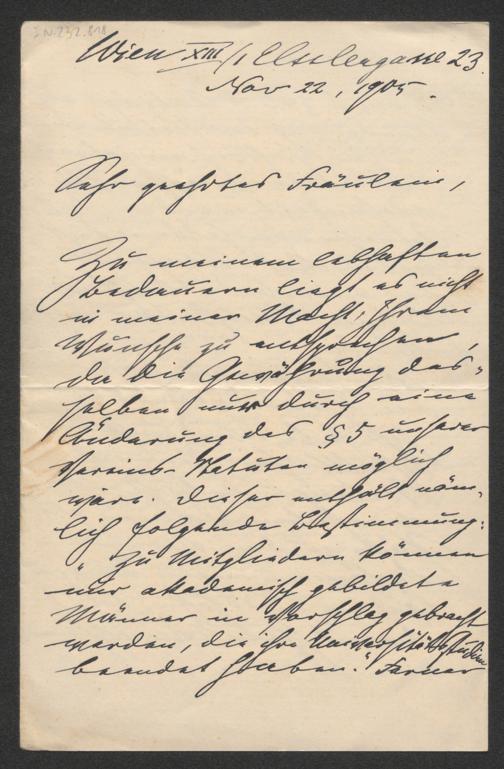 I.N. 232.818
Wien XIII/1 Elsslergasse 23.
Nov 22, 1905.
Sehr geehrtes Fräulein,
Zu meinem lebhaften
Bedauern liegt es nicht
in meiner Macht, Ihrem
Wunsche zu entsprechen,
da die Gewährung des-
selben nur durch eine
Änderung des § 5 unserer
Vereins-Statuten möglich
wäre. Dieser enthält näm-
lich folgende Bestimmung:
"Zu Mitgliedern können
nur akademisch gebildete
Männer in Vorschlag gebracht
werden, die ihre Universitäts-Studien
beendet haben." Ferner